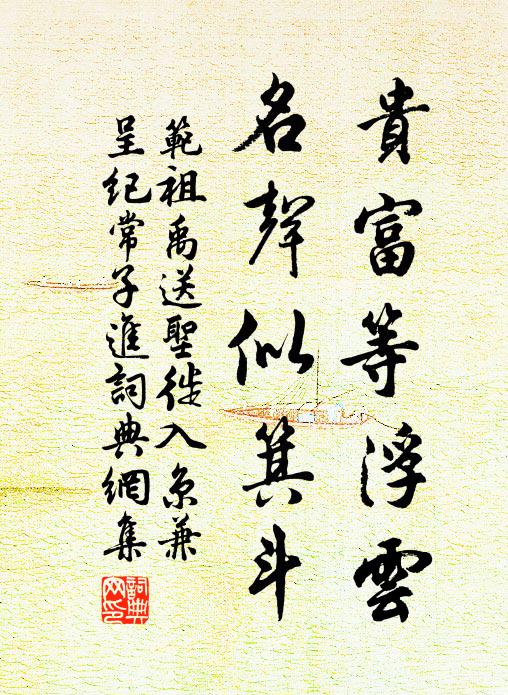 貴富等浮雲
名聲似箕斗
範祖禹送聖徙入京兼
呈纪常子進詞典網集
詞典
网印